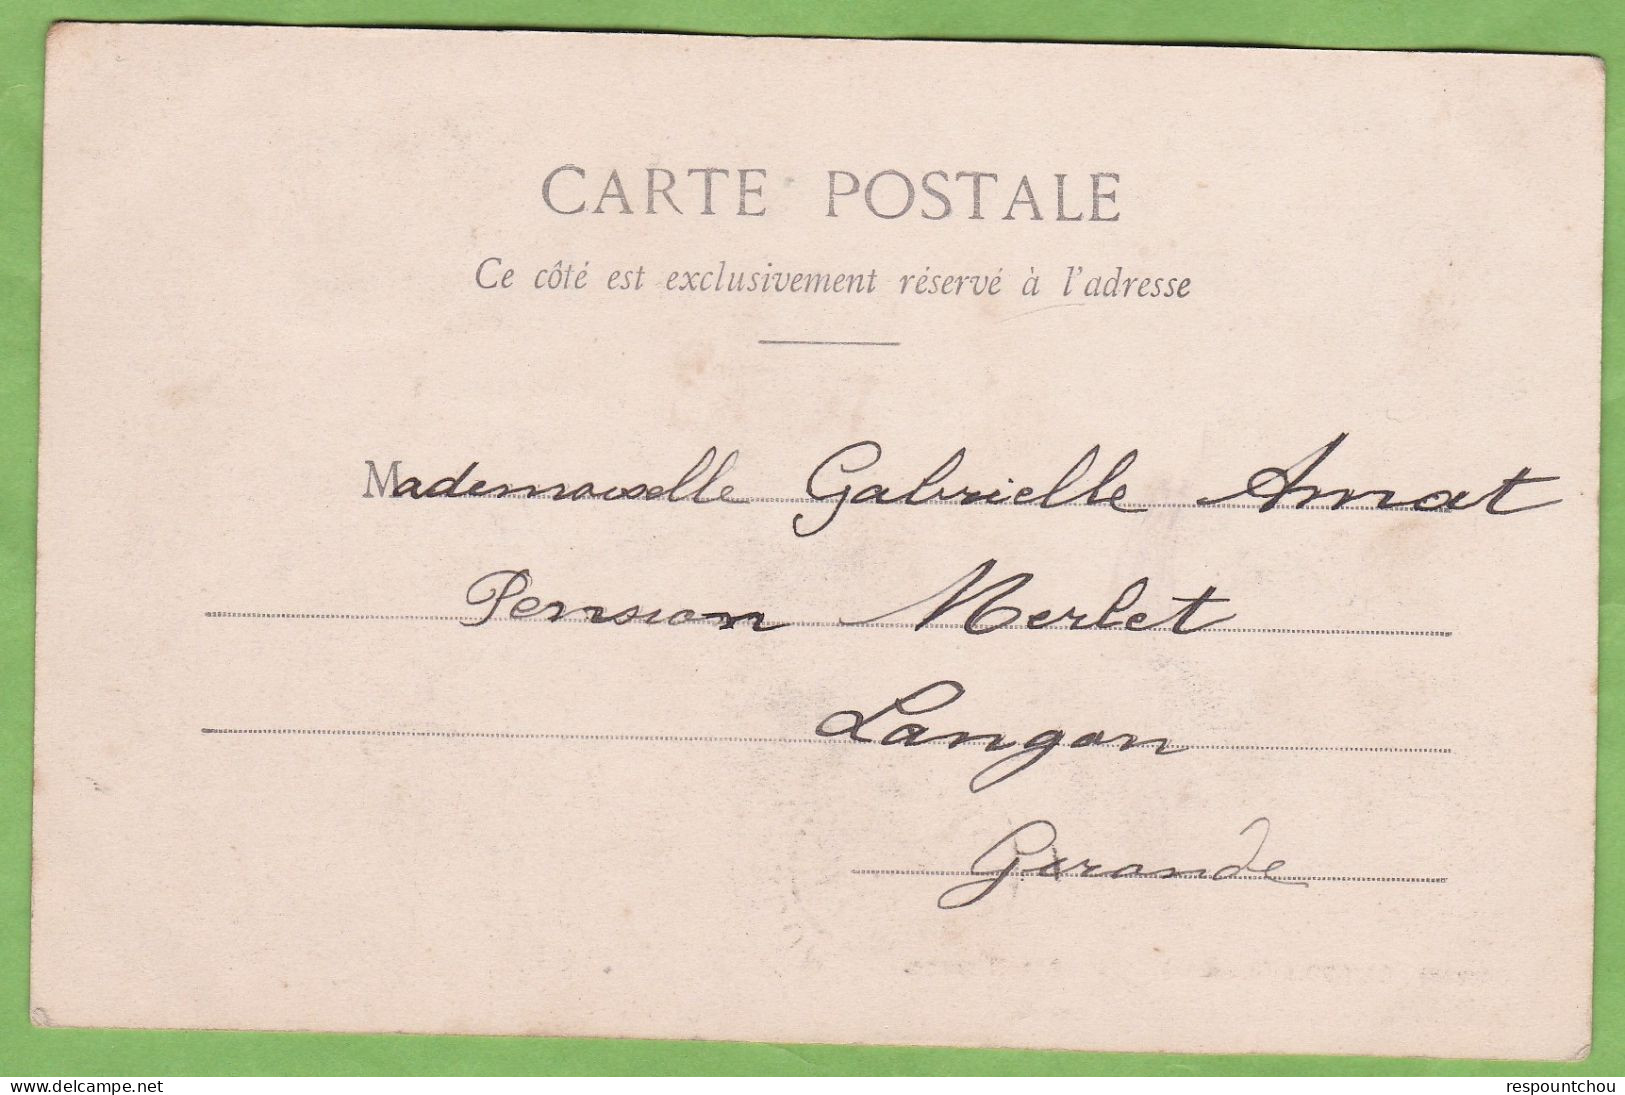 CARTE POSTALE
Ce côté est exclusivement réservé à l'adresse
Mademoiselle Gabrielle Amat
Pension Merlet
Langon
Gironde
www.delcampe.net
respountchou